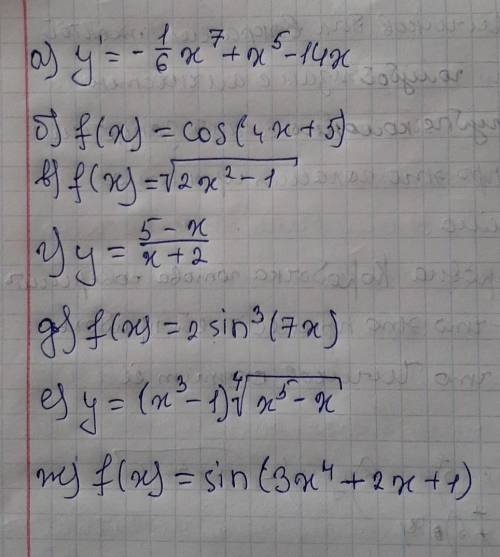 а) y = -1/6 x⁷ + x⁵ - 14x
б) f(x) = cos(4x + 5)
в) f(x) = √(2x² - 1)
г) y = (5 - x)/(x + 2)
д) f(x) = 2 sin³(7x)
е) y = (x³ - 1) ⁴√(x⁵ - x)
ж) f(x) = sin(3x⁴ + 2x + 1)